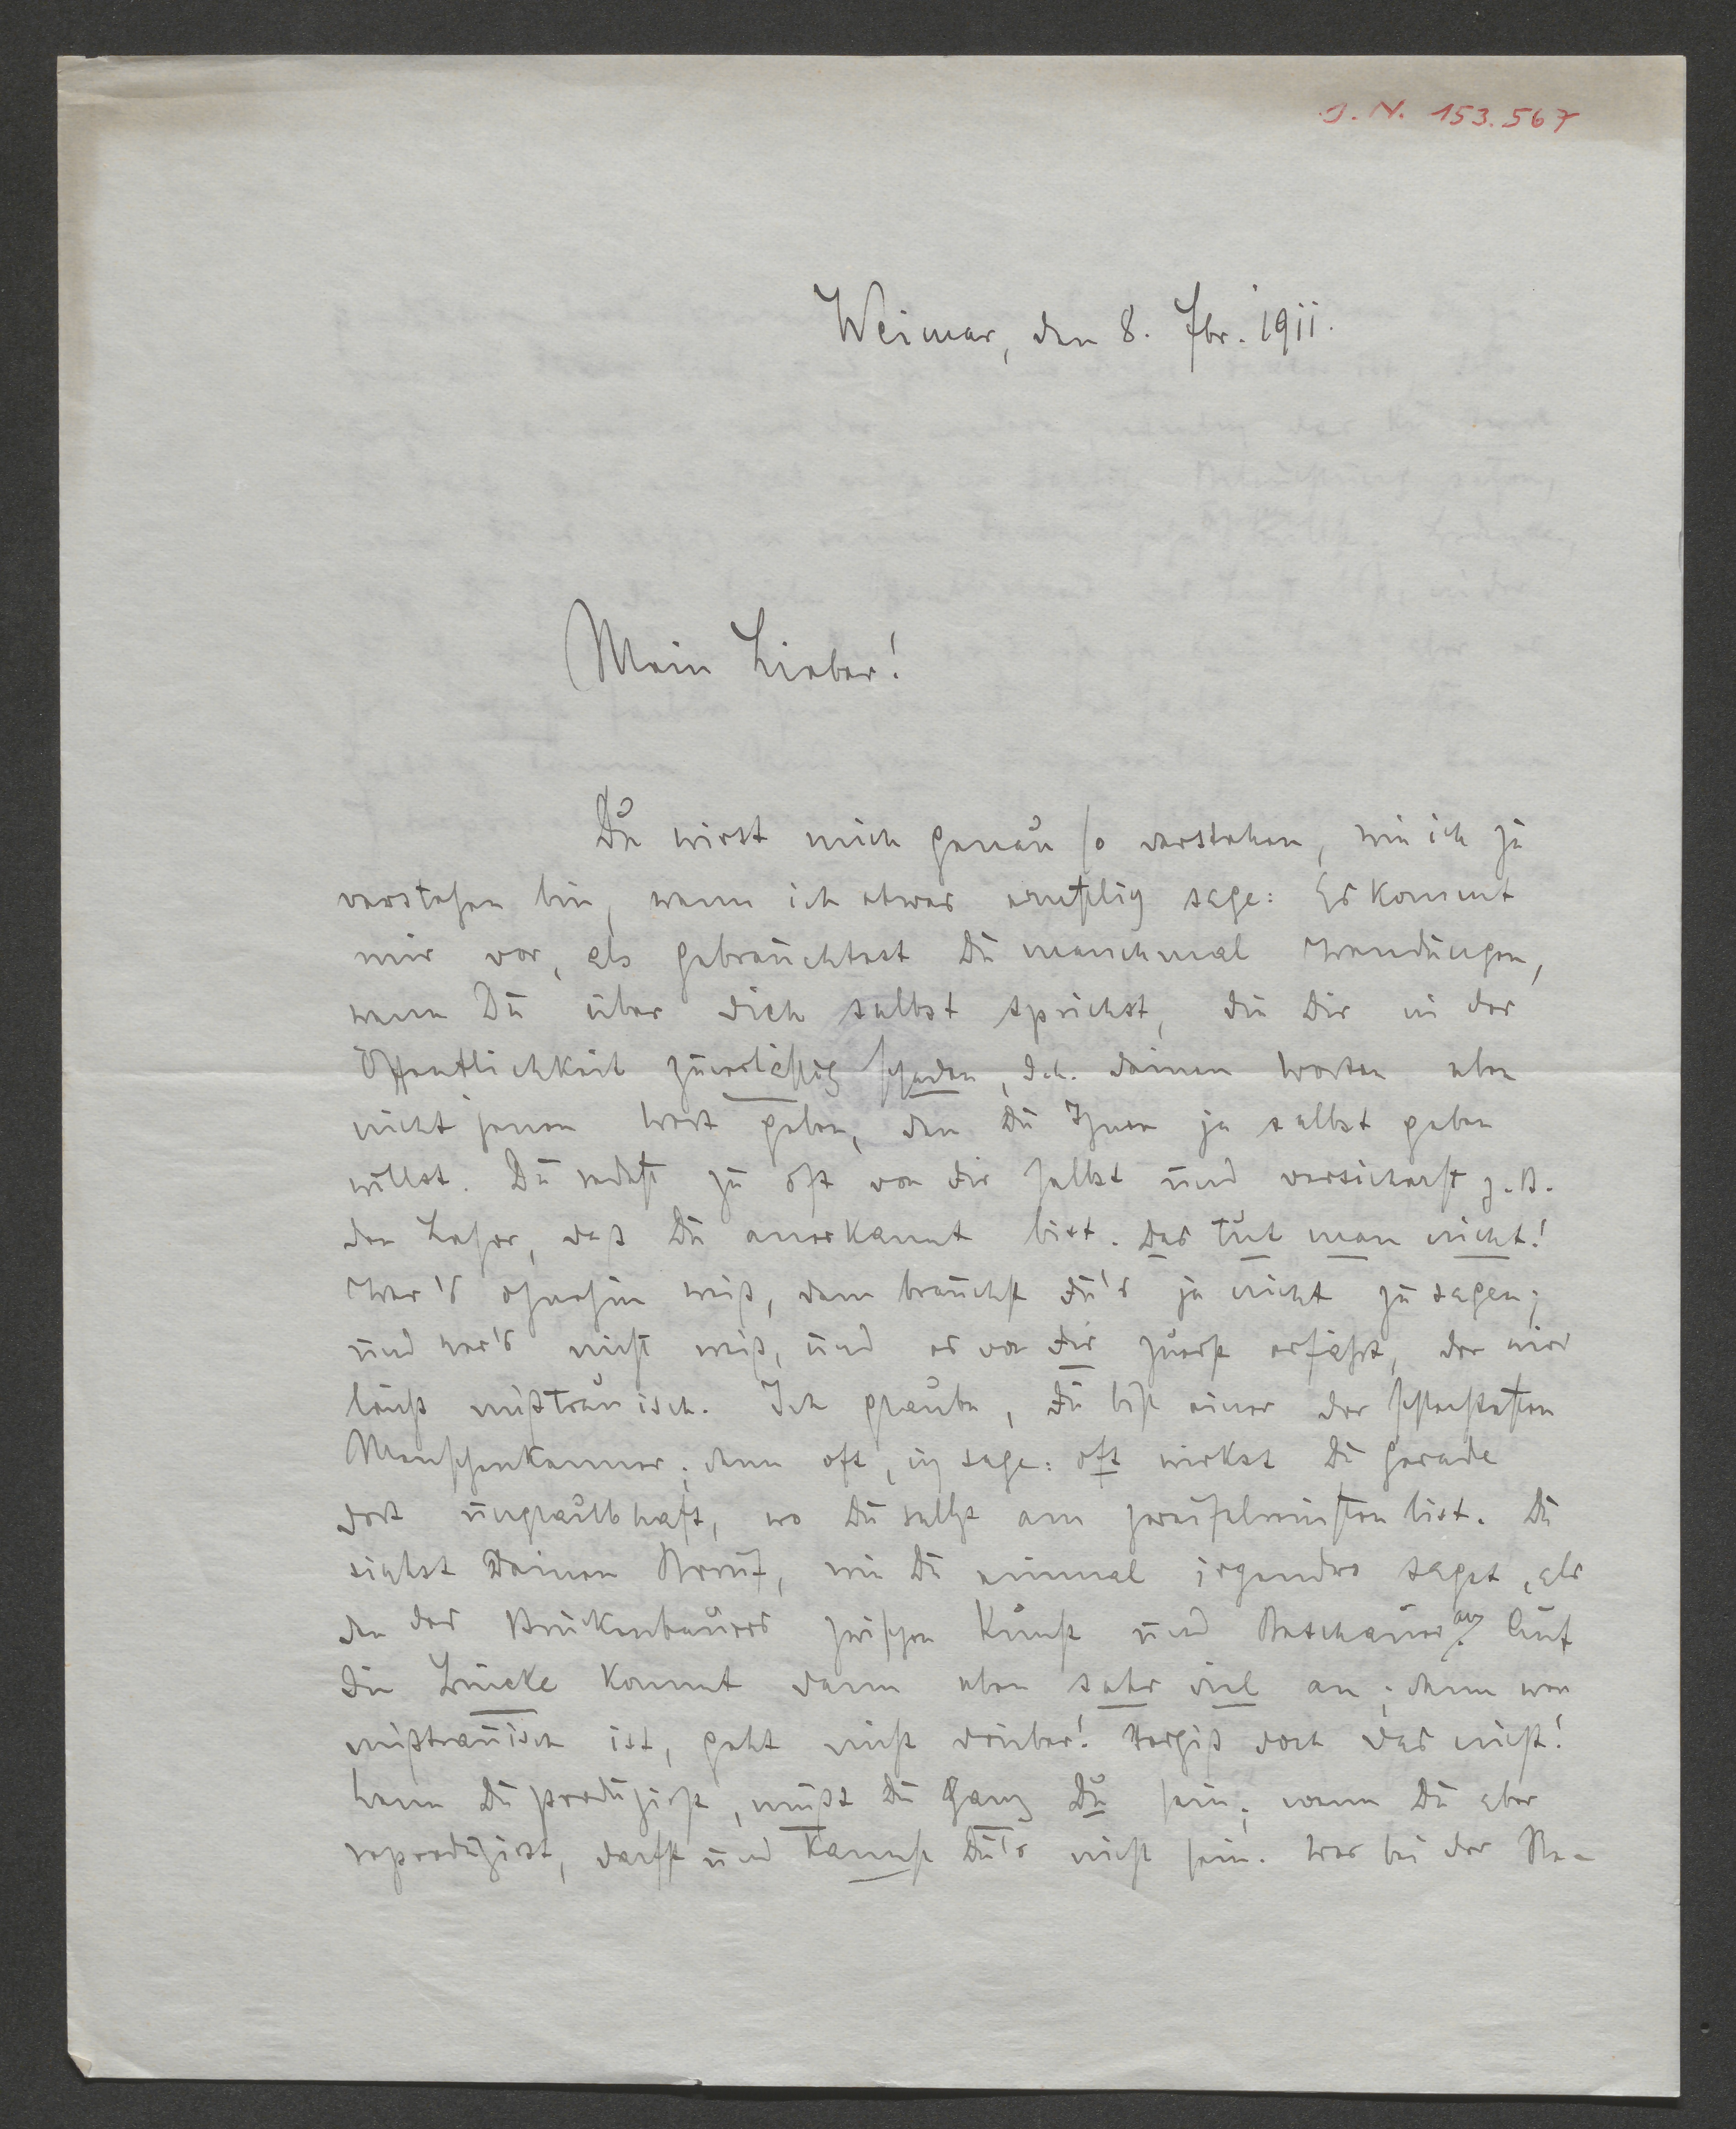 J. N. 153.567
Weimar, den 8. Jbr. 1911.
Mein Lieber!
Du wirst mich genau so verstehen, wie ich zu
verstehen bin, wenn ich etwas ernstlich sage: Es kommt
mir vor, als gebrauchtest Du manchmal Wendungen,
wenn Du über dich selbst sprichst, die Dir in der
Öffentlichkeit zuverläßig schaden, d.h. deinen Worten eben
nicht jenen Wert geben, den Du Ihnen ja selbst geben
willst. Du redest zu oft von dir selbst und versicherst z.B.
den Leser, daß Du anerkannt bist. Das tut man nicht!
Wer's ohnehin weiß, dem brauchst du's ja nicht zu sagen;
und wer's nicht weiß, und es von dir zuerst erfährt, der wird
leicht mißtrauisch. Ich glaube, du bist einer der schlechtesten
Menschenkenner; denn oft, ich sage: oft wirkst Du gerade
dort unglaubhaft, wo Du selbst am zweifelreinsten bist. Du
siehst Deinen Beruf, wie Du einmal irgendwo sagst, als
den des Brückenbauers zwischen Kunst und Beschauer an. Auf
die Brücke kommt dann eben sehr viel an; denn wer
mißtrauisch ist, geht nicht drüber! Vergiß doch das nicht!
Wenn Du produzierst, mußt Du ganz Du sein; wenn Du aber
reproduzierst, darfst und kannst Du's nicht sein. Wer bei der Re-